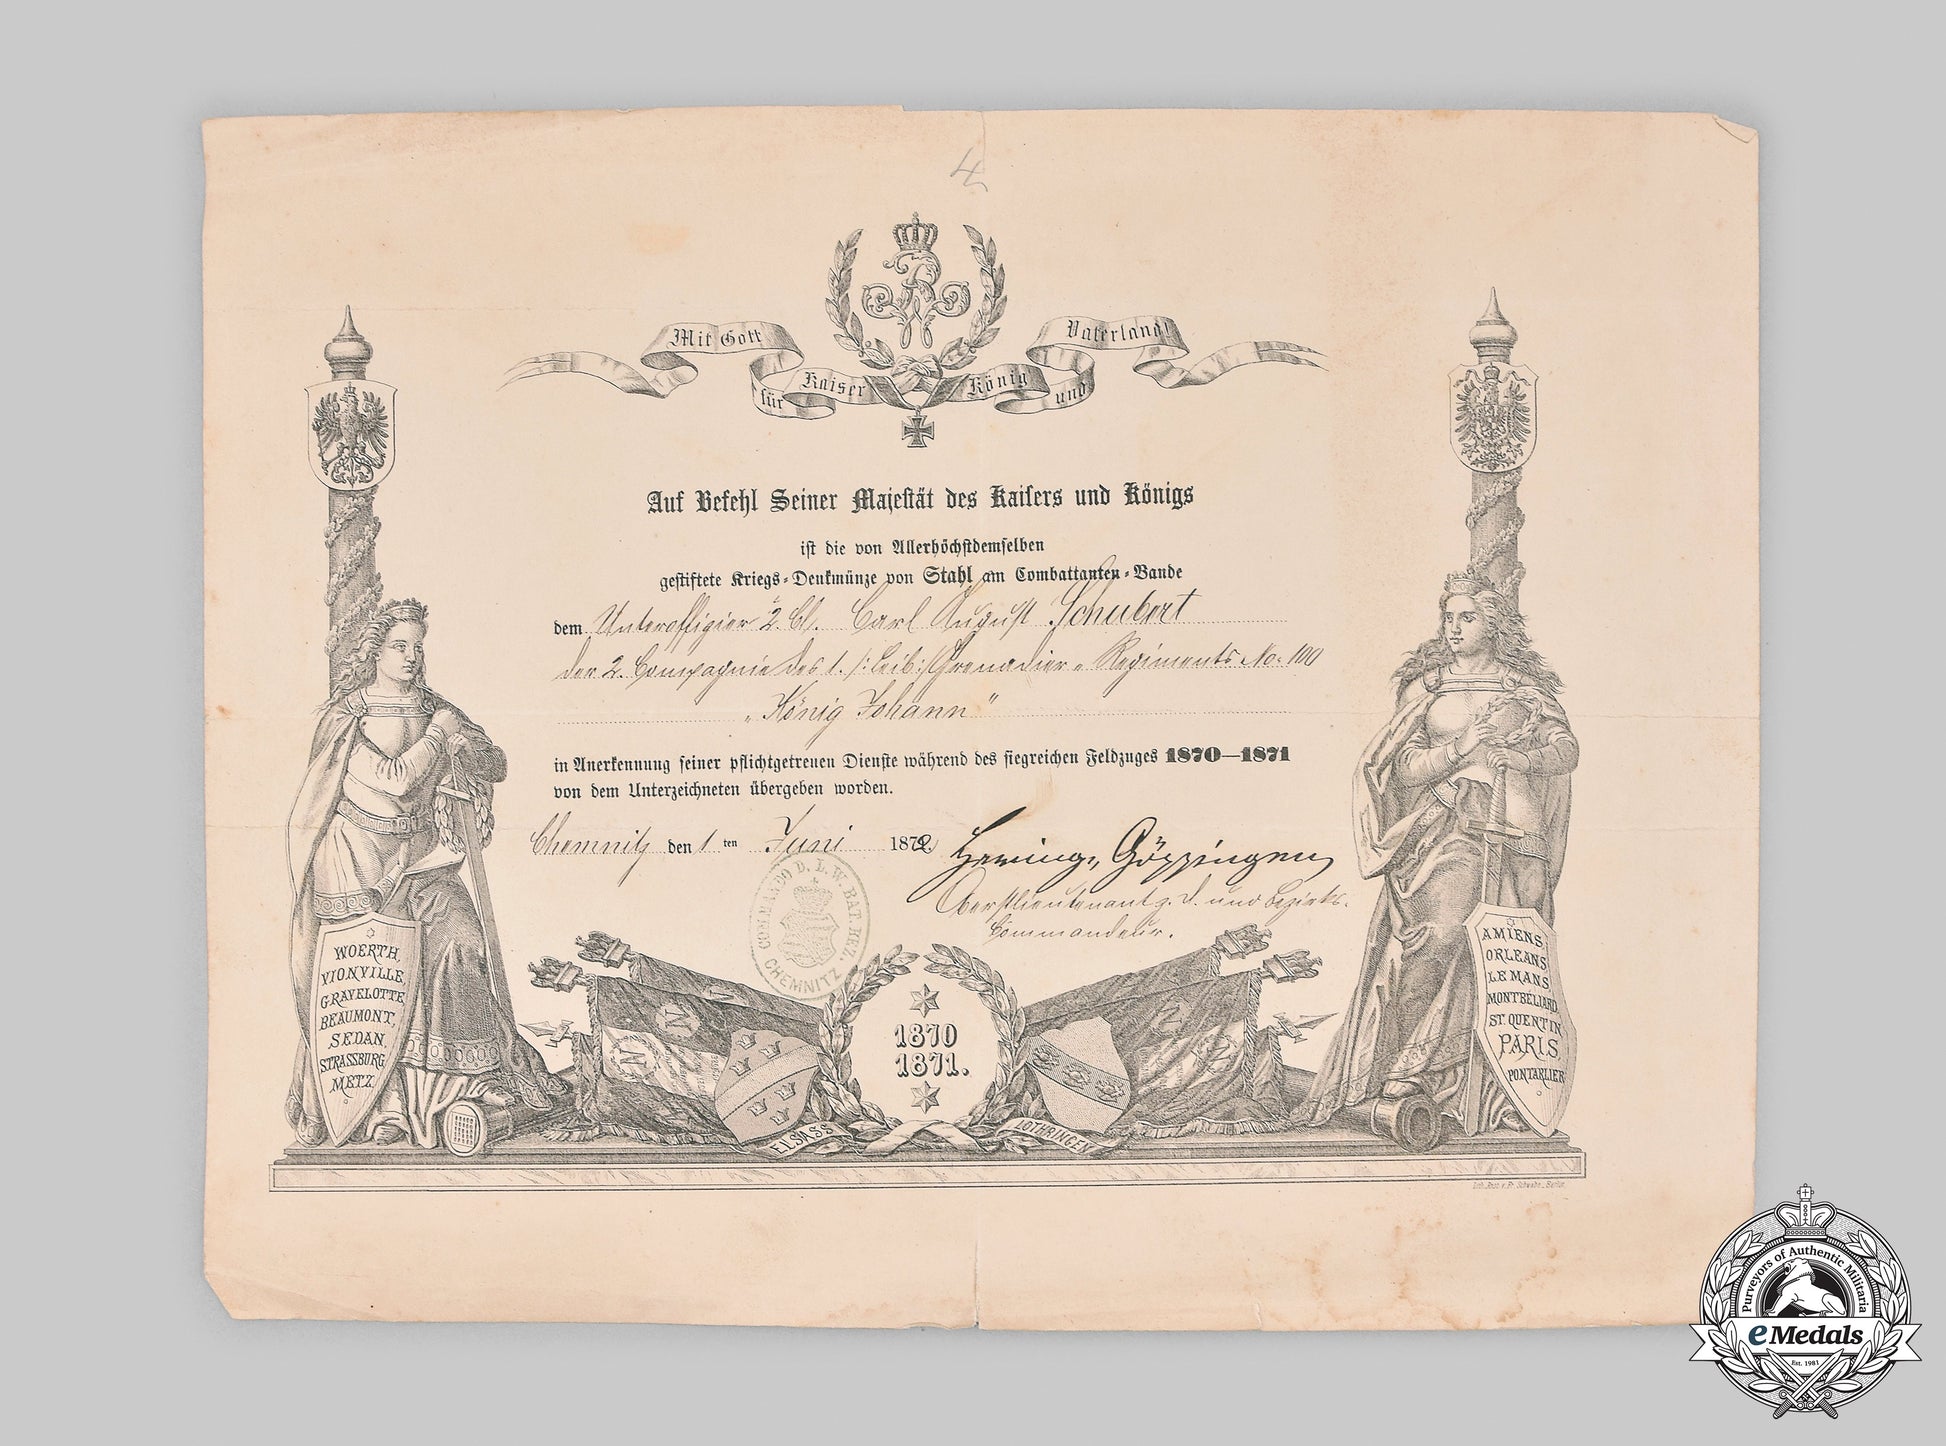 4
Mit Gott für Kaiser König und Vaterland!
Auf Befehl Seiner Majestät des Kaisers und Königs
ist die von Allerhöchstdemselben
gestiftete Kriegs-Denkmünze von Stahl am Combattanten-Bande
dem Unteroffizier 2. Cl. Carl August Schubert
der 2. Compagnie des 1. /:Leib:/ Grenadier-Regiments No. 100
"König Johann"
in Anerkennung seiner pflichtgetreuen Dienste während des siegreichen Feldzuges 1870—1871
von dem Unterzeichneten übergeben worden.
Chemnitz den 1 ten Juni 1872
Göppingen
Oberstlieutenant z. D. und Bezirks-
Commandeur.
COMMANDO D. L. W. BAT. BEZ.
CHEMNITZ
WOERTH,
VIONVILLE,
GRAVELOTTE
BEAUMONT,
SEDAN,
STRASSBURG
METZ.
1870
1871.
ELSASS
LOTHRINGEN
AMIENS,
ORLEANS,
LE MANS,
MONTBELIARD,
ST. QUENTIN
PARIS,
PONTARLIER
Purveyors of Authentic Militaria
eMedals
Est. 1983